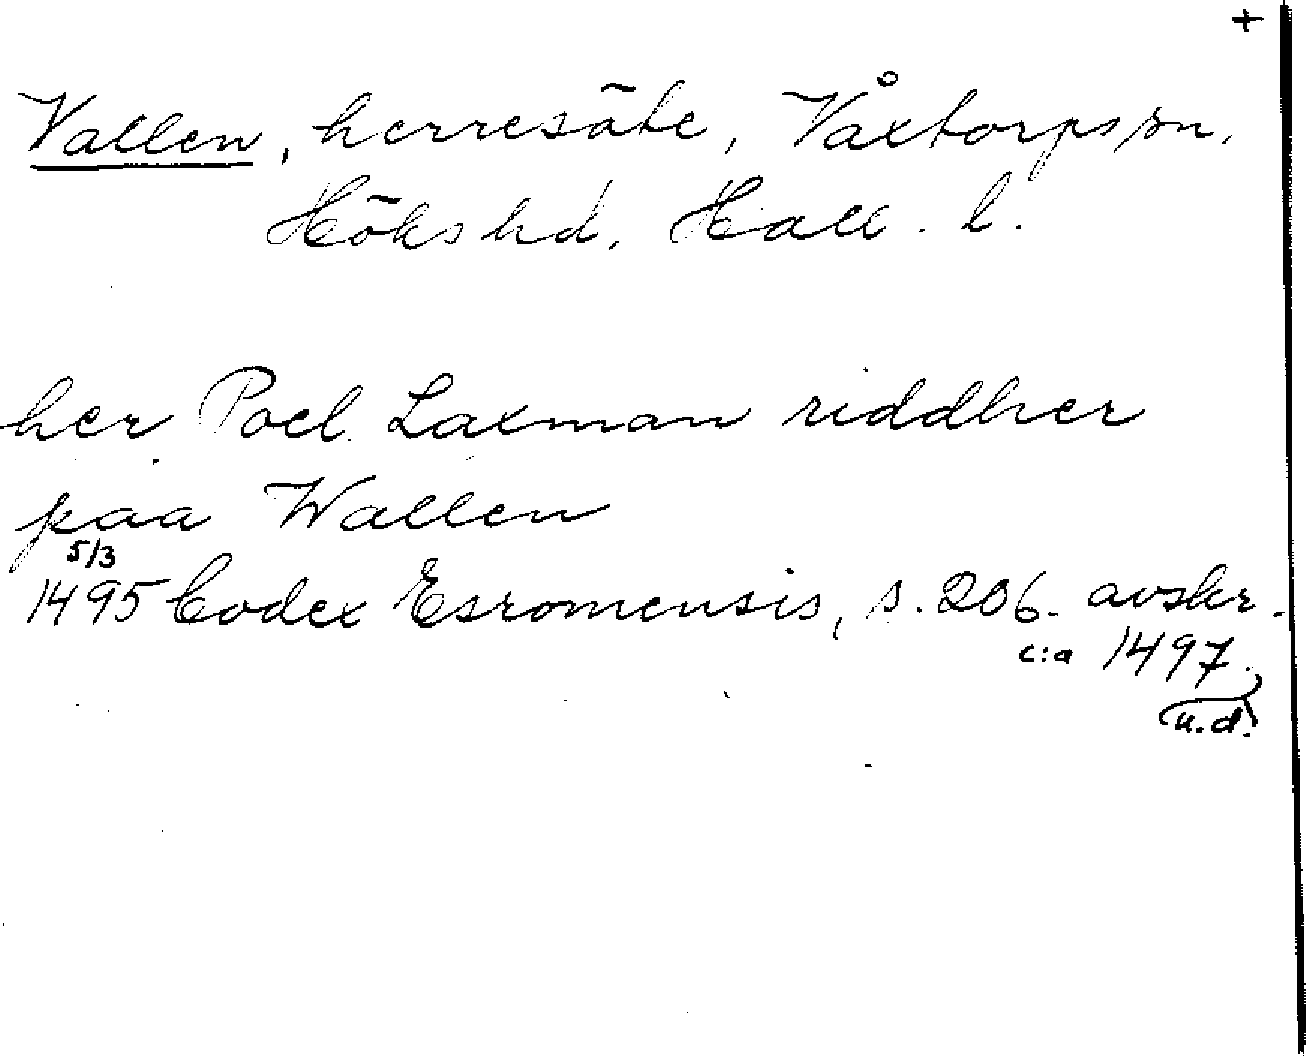 +
Vallen, herresäte, Våxtorps sn,
Höks hd, Hall. l.
her Poel Laxman riddher
paa Wallen
5/3
1495 Codex Esromensis, s. 206. avskr.
c:a 1497.
u.d.